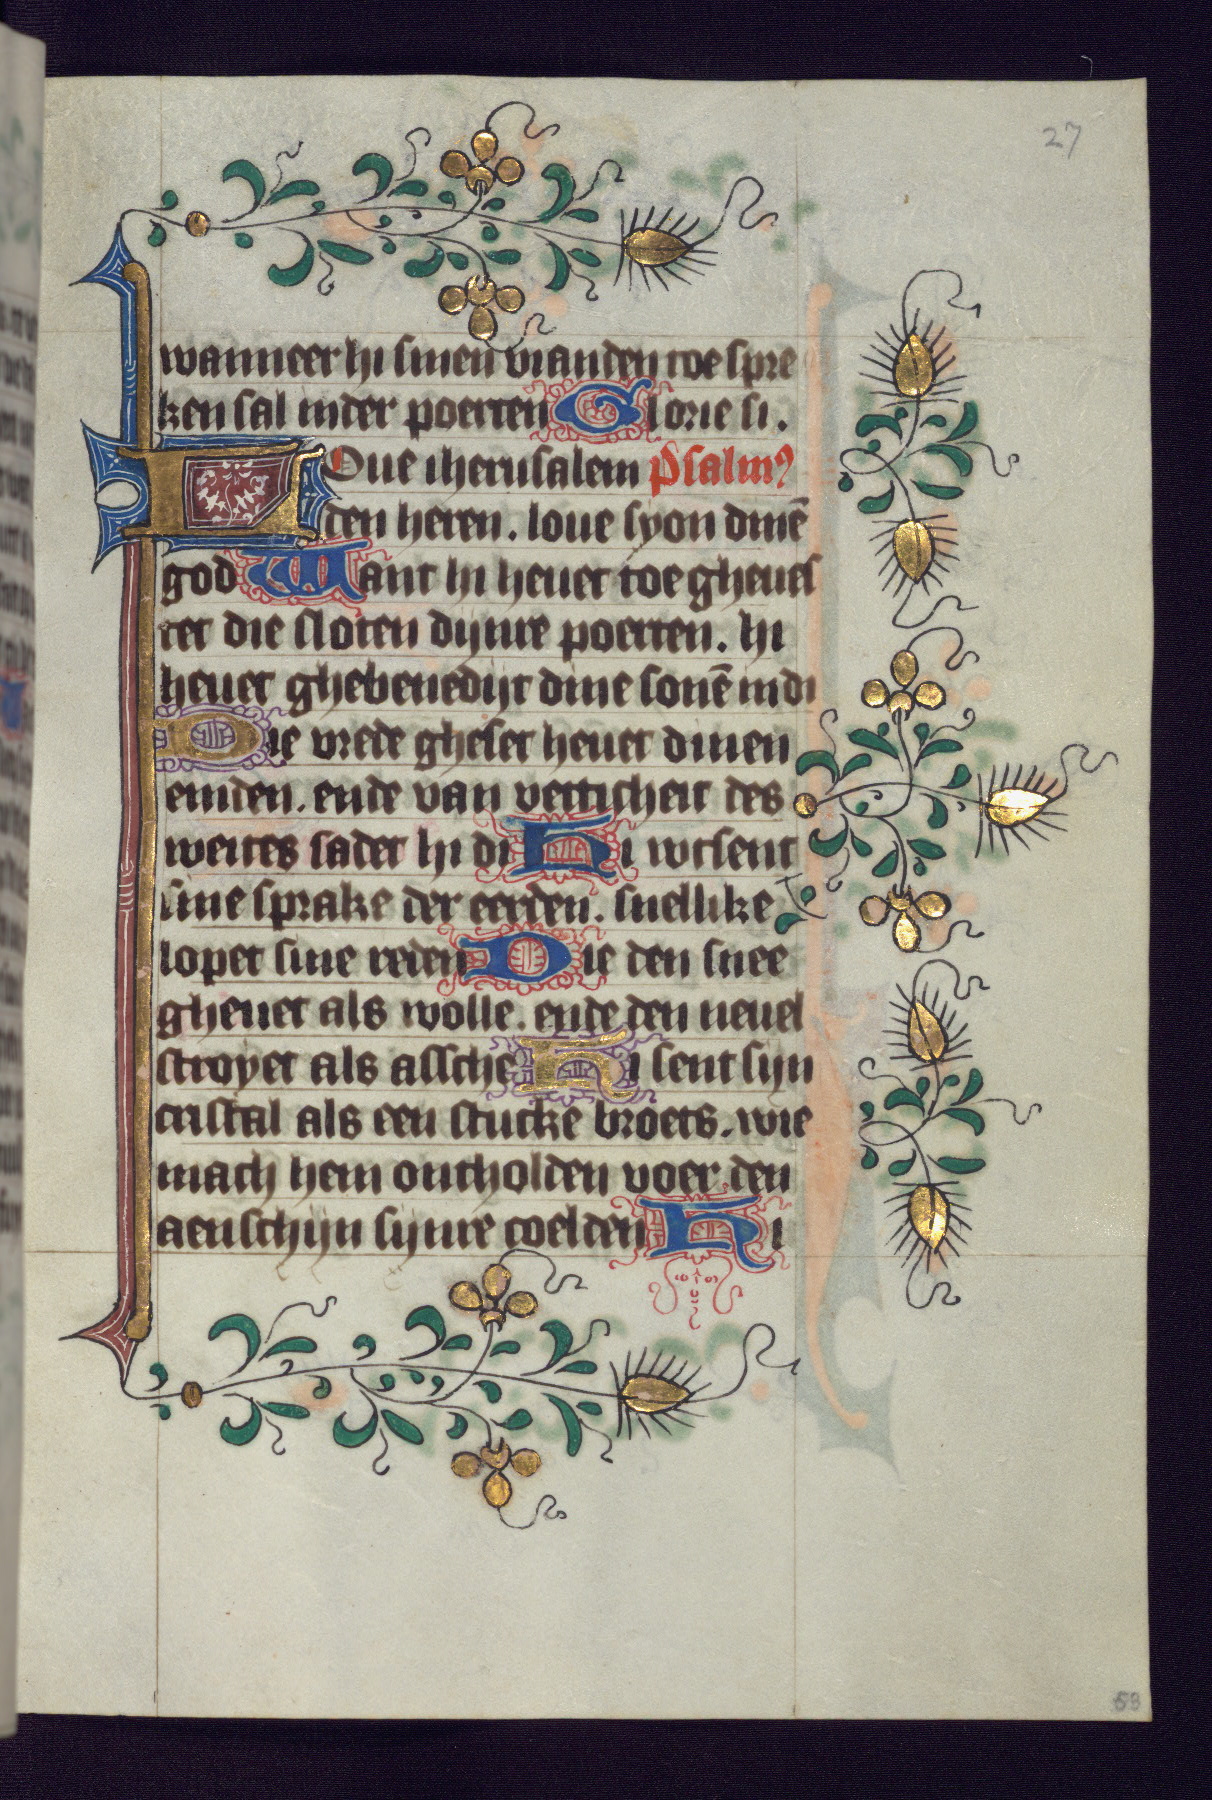 27
wanneer hi sinen vianden toe spre
ken sal inder poerten Glorie si.
LOue iherusalem Psalmꝰ
den heren. loue syon dinē
god Want hi heuet toe gheues
tet die sloten dijnre poerten. hi
heuet ghebenedijt dine sonē in di
Die vrede gheset heuet dinen
einden. ende van vetticheit des
weites sadet hi di Hi wtsent
sine sprake der eerden. snellike
lopet sine reden Die den snee
gheuet als wolle. ende den neuel
stroyet als assche Hi sent sijn
cristal als een stucke broets. wie
mach hem ontholden voer den
aenschijn sijnre coelden Hi
53